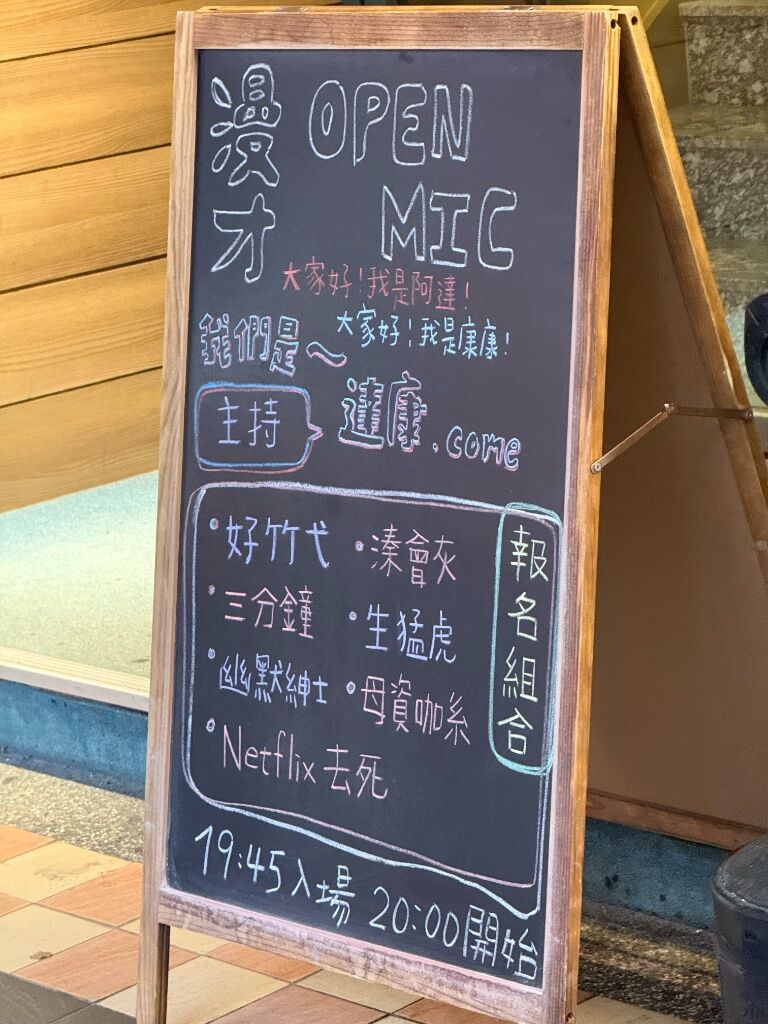 漫才 OPEN MIC
大家好！我是阿達！
大家好！我是康康！
我們是～
主持
達康.come
報名組合
•好竹弋
•三分鐘
•幽默紳士
•Netflix去死
•溱會灰
•生猛虎
•母資咖系
19:45入場 20:00開始